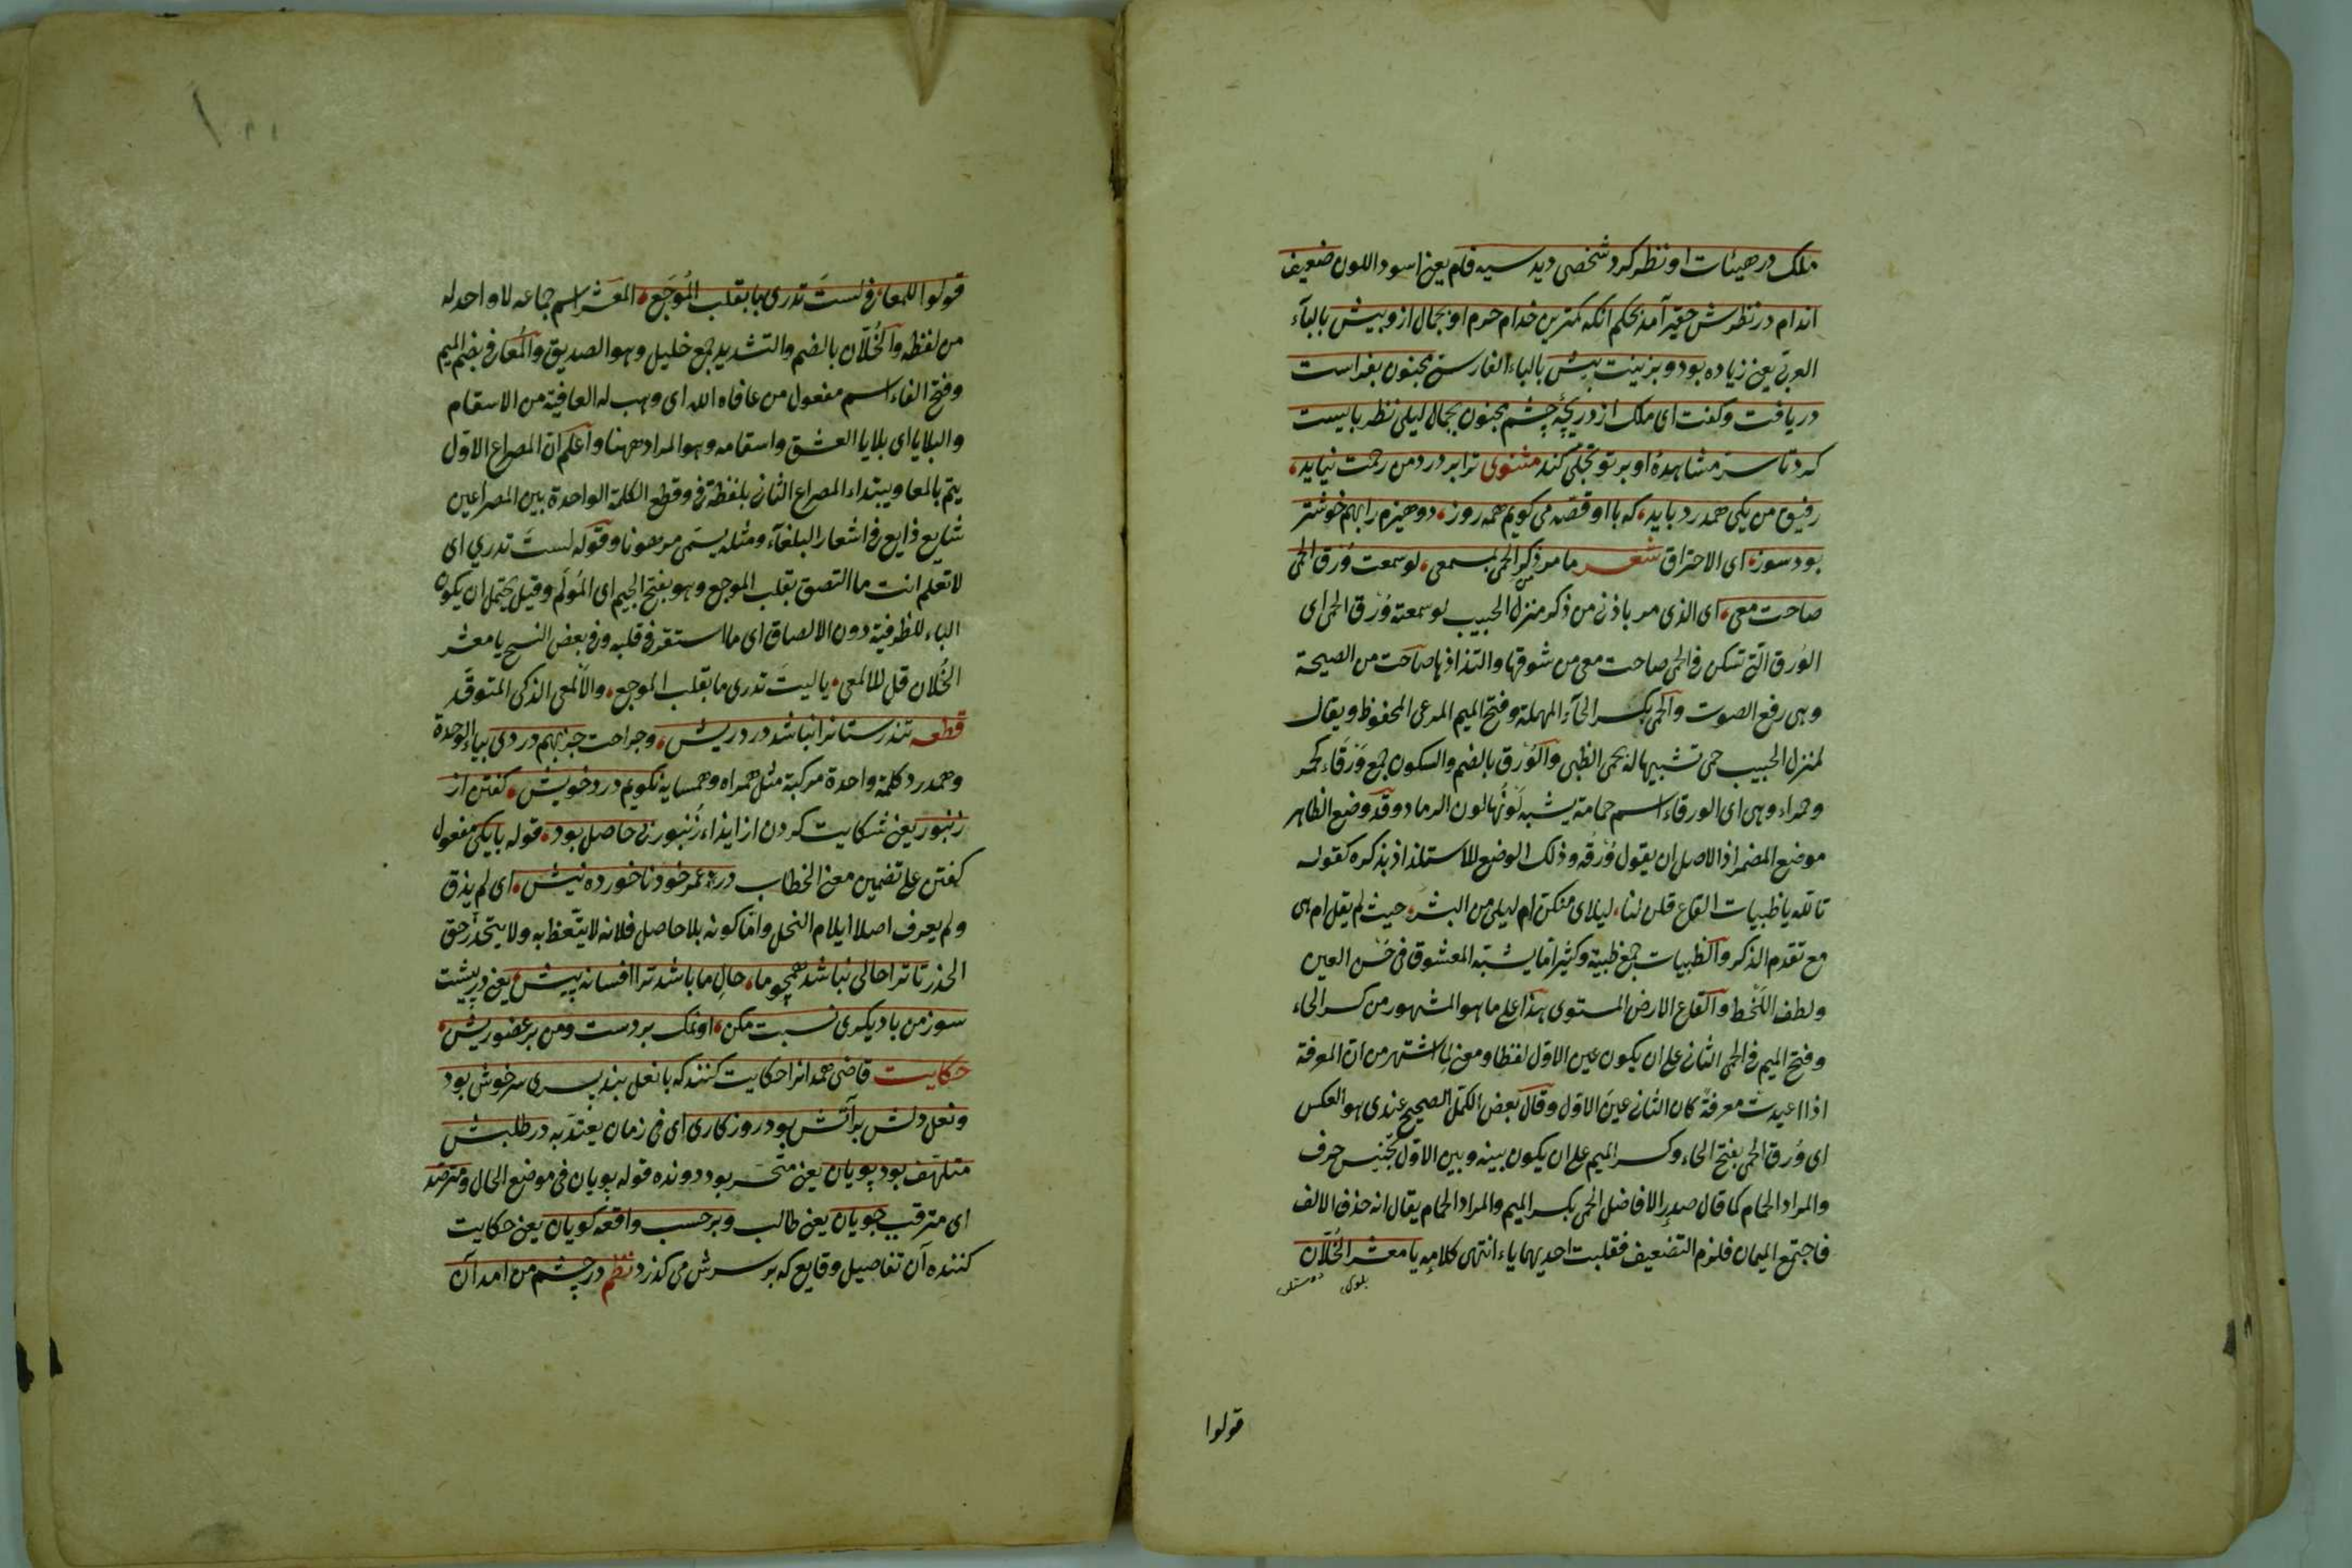 ملک در هیئات او نظر کرد شخصی دید سیه فام یعنی اسود اللون ضعیف
اندام در نظرش حقیر آمد بحکم آنکه کمترین خدام حرم او بجمال ازو بیش بالبآء
العربی یعنی زیاده بود و بزینت پیش بالباء الفارسی مجنون بفراست
دریافت و گفت ای ملک از دریچهٔ چشم مجنون بجمال لیلی نظر بایست
کرد تا سرّ مشاهدهٔ او بر تو تجلی کند مثنوی ترا بر درد من رحمت نیاید
رفیق من یکی همدرد باید که با او قصه می کویم همه روز دو هیزم را بهم خوشتر
بود سوز ای الاحتراق شعر ما مر من ذکر الحمی بمسمعی لو سمعت وُرق الحمی
صاحت معی ای الذی مر باذنی من ذکر منزل الحبیب لو سمعته وُرق الحمی ای
الوُرق التی تسکن فی الحمی صاحت معی من شوقها والتذاذها صاحت من الصیحة
وهی رفع الصوت والحمی بکسر الحآء المهملة وفتح المیم المرعی المحفوظ ویقال
لمنزل الحبیب حمی تشبیها له بحمی الظبی والوُرق بالضم والسکون جمع وَرقاء کحمر
وحمراء وهی ای الورقاء اسم حمامة یشبه لونُها لون الرماد وقد وضع الظاهر
موضع المضمر اذ الاصل ان یقول وُرقه وذلک الوضع للاستلذاذ بذکره کقوله
تالله یا ظبیات القاع قلن لنا لیلای منکن ام لیلی من البشر حیث لم یقل ام هی
مع تقدم الذکر والظبیات جمع ظبیة وکثیرا ما یشبّه المعشوق فی حسن العین
ولطف اللحظ والقاع الارض المستوی هذا علی ما هو المشهور من کسر الحاء
وفتح المیم فی الحمی الثانی علی ان یکون عین الاوّل لفظا ومعنی لما اشتهر من ان المعرفة
اذا اعیدت معرفةً کان الثانی عینَ الاوّل وقال بعض الکمّل الصحیح عندی هو العکس
ای وُرق الحمی بفتح الحاء وکسر المیم علی ان یکون بینه وبین الاوّل تجنیس حرف
والمراد الحمام کما قال صدر الافاضل الحمی بکسر المیم والمراد الحمام یقال انه حذف الالف
فاجتمع المیمان فلزم التضعیف فقلبت احدیهما یاء انتهی کلامه یا معشر الخُلّان
قولوا
قولوا للمعافی لستَ تدری ما بقلب المُوجَع المعشر اسم جماعه لا واحد له
من لفظه والخُلّان بالضم والتشدید جمع خلیل وهو الصدیق والمُعافی بضم المیم
وفتح الفاء اسم مفعول من عافاه الله ای وهب له العافیة من الاسقام
والبلایا ای بلایا العشق واسقامه وهو المراد ههنا واعلم ان المصراع الاوّل
یتم بالمعا ویبتداء المصراع الثانی بلفظة فی وقطع الکلمة الواحدة بین المصراعین
شایع ذایع فی اشعار البلغآء ومثله یسمّی مرهونا وقوله لستَ تدری ای
لا تعلم انت ما التصق بقلب الموجع وهو بفتح الجیم ای المُولَم وقیل یحتمل ان یکون
الباء للظرفیة دون الالصاق ای ما استقر فی قلبه وفی بعض النسخ یا معشر
الخُلّان قل للالمعی یا لیتَ تدری ما بقلب الموجع والالمعی الذکی المتوقّد
قطعه تندرستانرا نباشد درد ریش وجراحت جز بهم دردی بیاء الوحدة
وهمدرد کلمة واحدة مرکبة مثل همراه وهمسایه نکویم درد خویش کفتن از
زنبور یعنی شکایت کردن از ایذاء زُنبور بی حاصل بود قوله با یکی مفعول
کفتن علی تضمین معنی الخطاب در عمر خود ناخورده نیش ای لم یذق
ولم یعرف اصلا ایلام النحل واما کونه بلا حاصل فلانه لا یتّعظ به ولا یتحذّر حق
الحذر تا ترا حالی نباشد همچو ما حالِ ما باشد ترا افسانه پیش یعنی در پیشت
سوز من با دیکری نسبت مکن او نمک بر دست ومن بر عضو ریش
حکایت قاضی همدانرا حکایت کنند که با نعل بند پسری سرخوش بود
ونعل دلش بر آتش بود روزکاری ای فی زمان یعتدّ به در طلبش
متلهّف بود پویان یعنی متحسّر بود دونده قوله پویان فی موضع الحال ومترصّد
ای مترقب جویان یعنی طالب وبر حسب واقعه کویان یعنی حکایت
کننده آن تفاصیل وقایع که بر سرش می کذرد نظم در چشم من امد آن